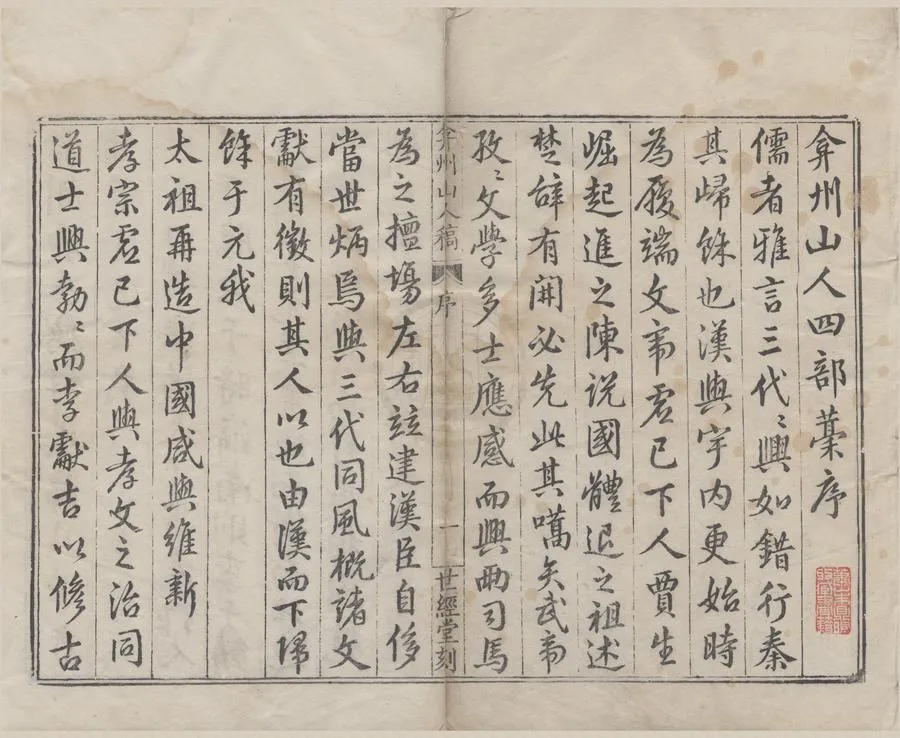 弇州山人四部藁序
儒者雅言三代〻興如錯行秦
其歸餘也漢興宇内更始時
為履端文帝虛己下人賈生
崛起進之陳說國體退之祖述
楚辭有開必先此其嚆矢武帝
孜〻文學多士應感而興兩司馬
弇州山人稿 序 一 世經堂刻
為之擅場左右竝建漢臣自侈
當世炳焉與三代同風概諸文
獻有徵則其人以也由漢而下歸
餘于元我
太祖再造中國咸與維新
孝宗虛己下人興孝文之治同
道士興勃〻而李獻吉以修古